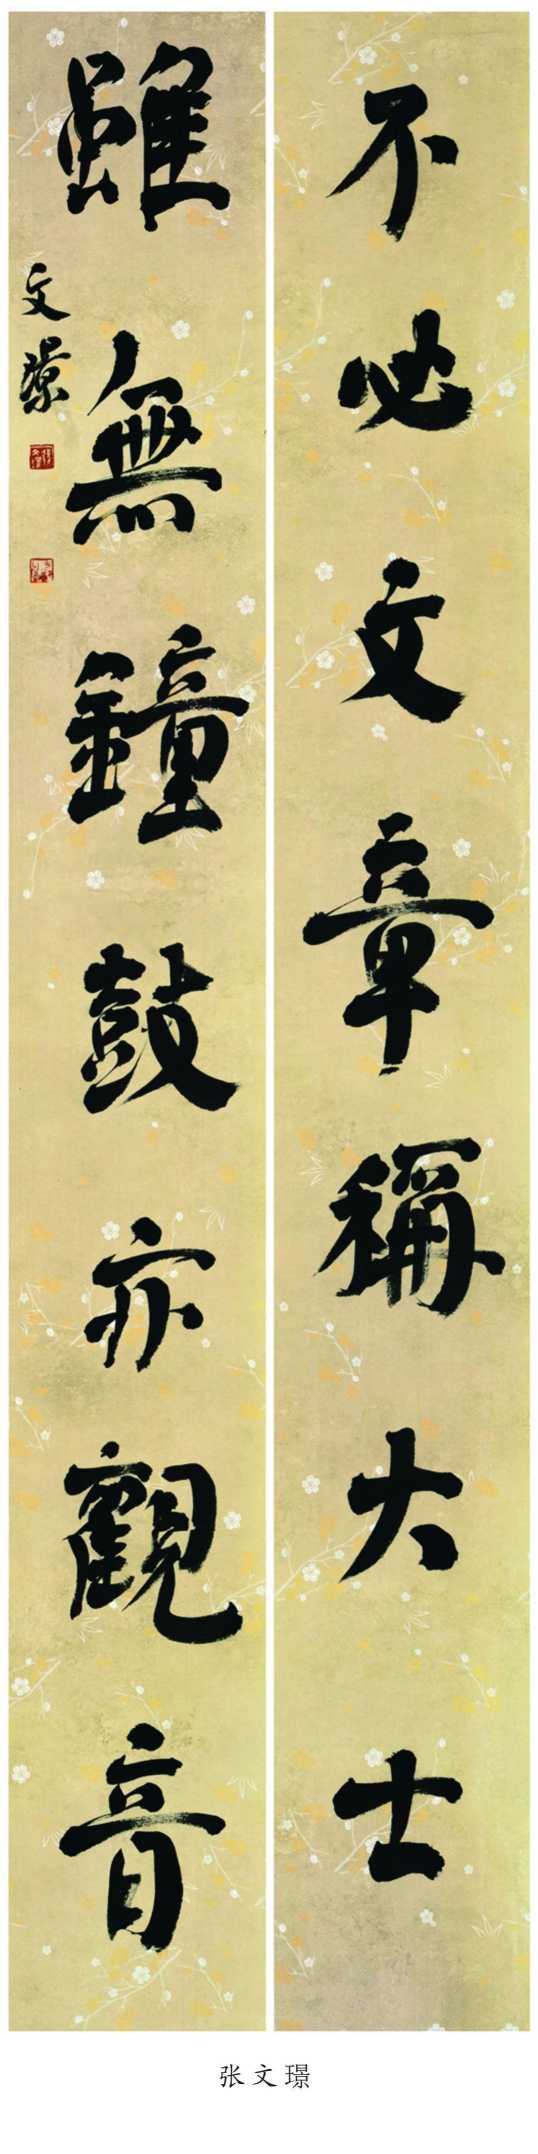 不必文章稱大士
雖無鐘鼓亦觀音
文璟
张文璟